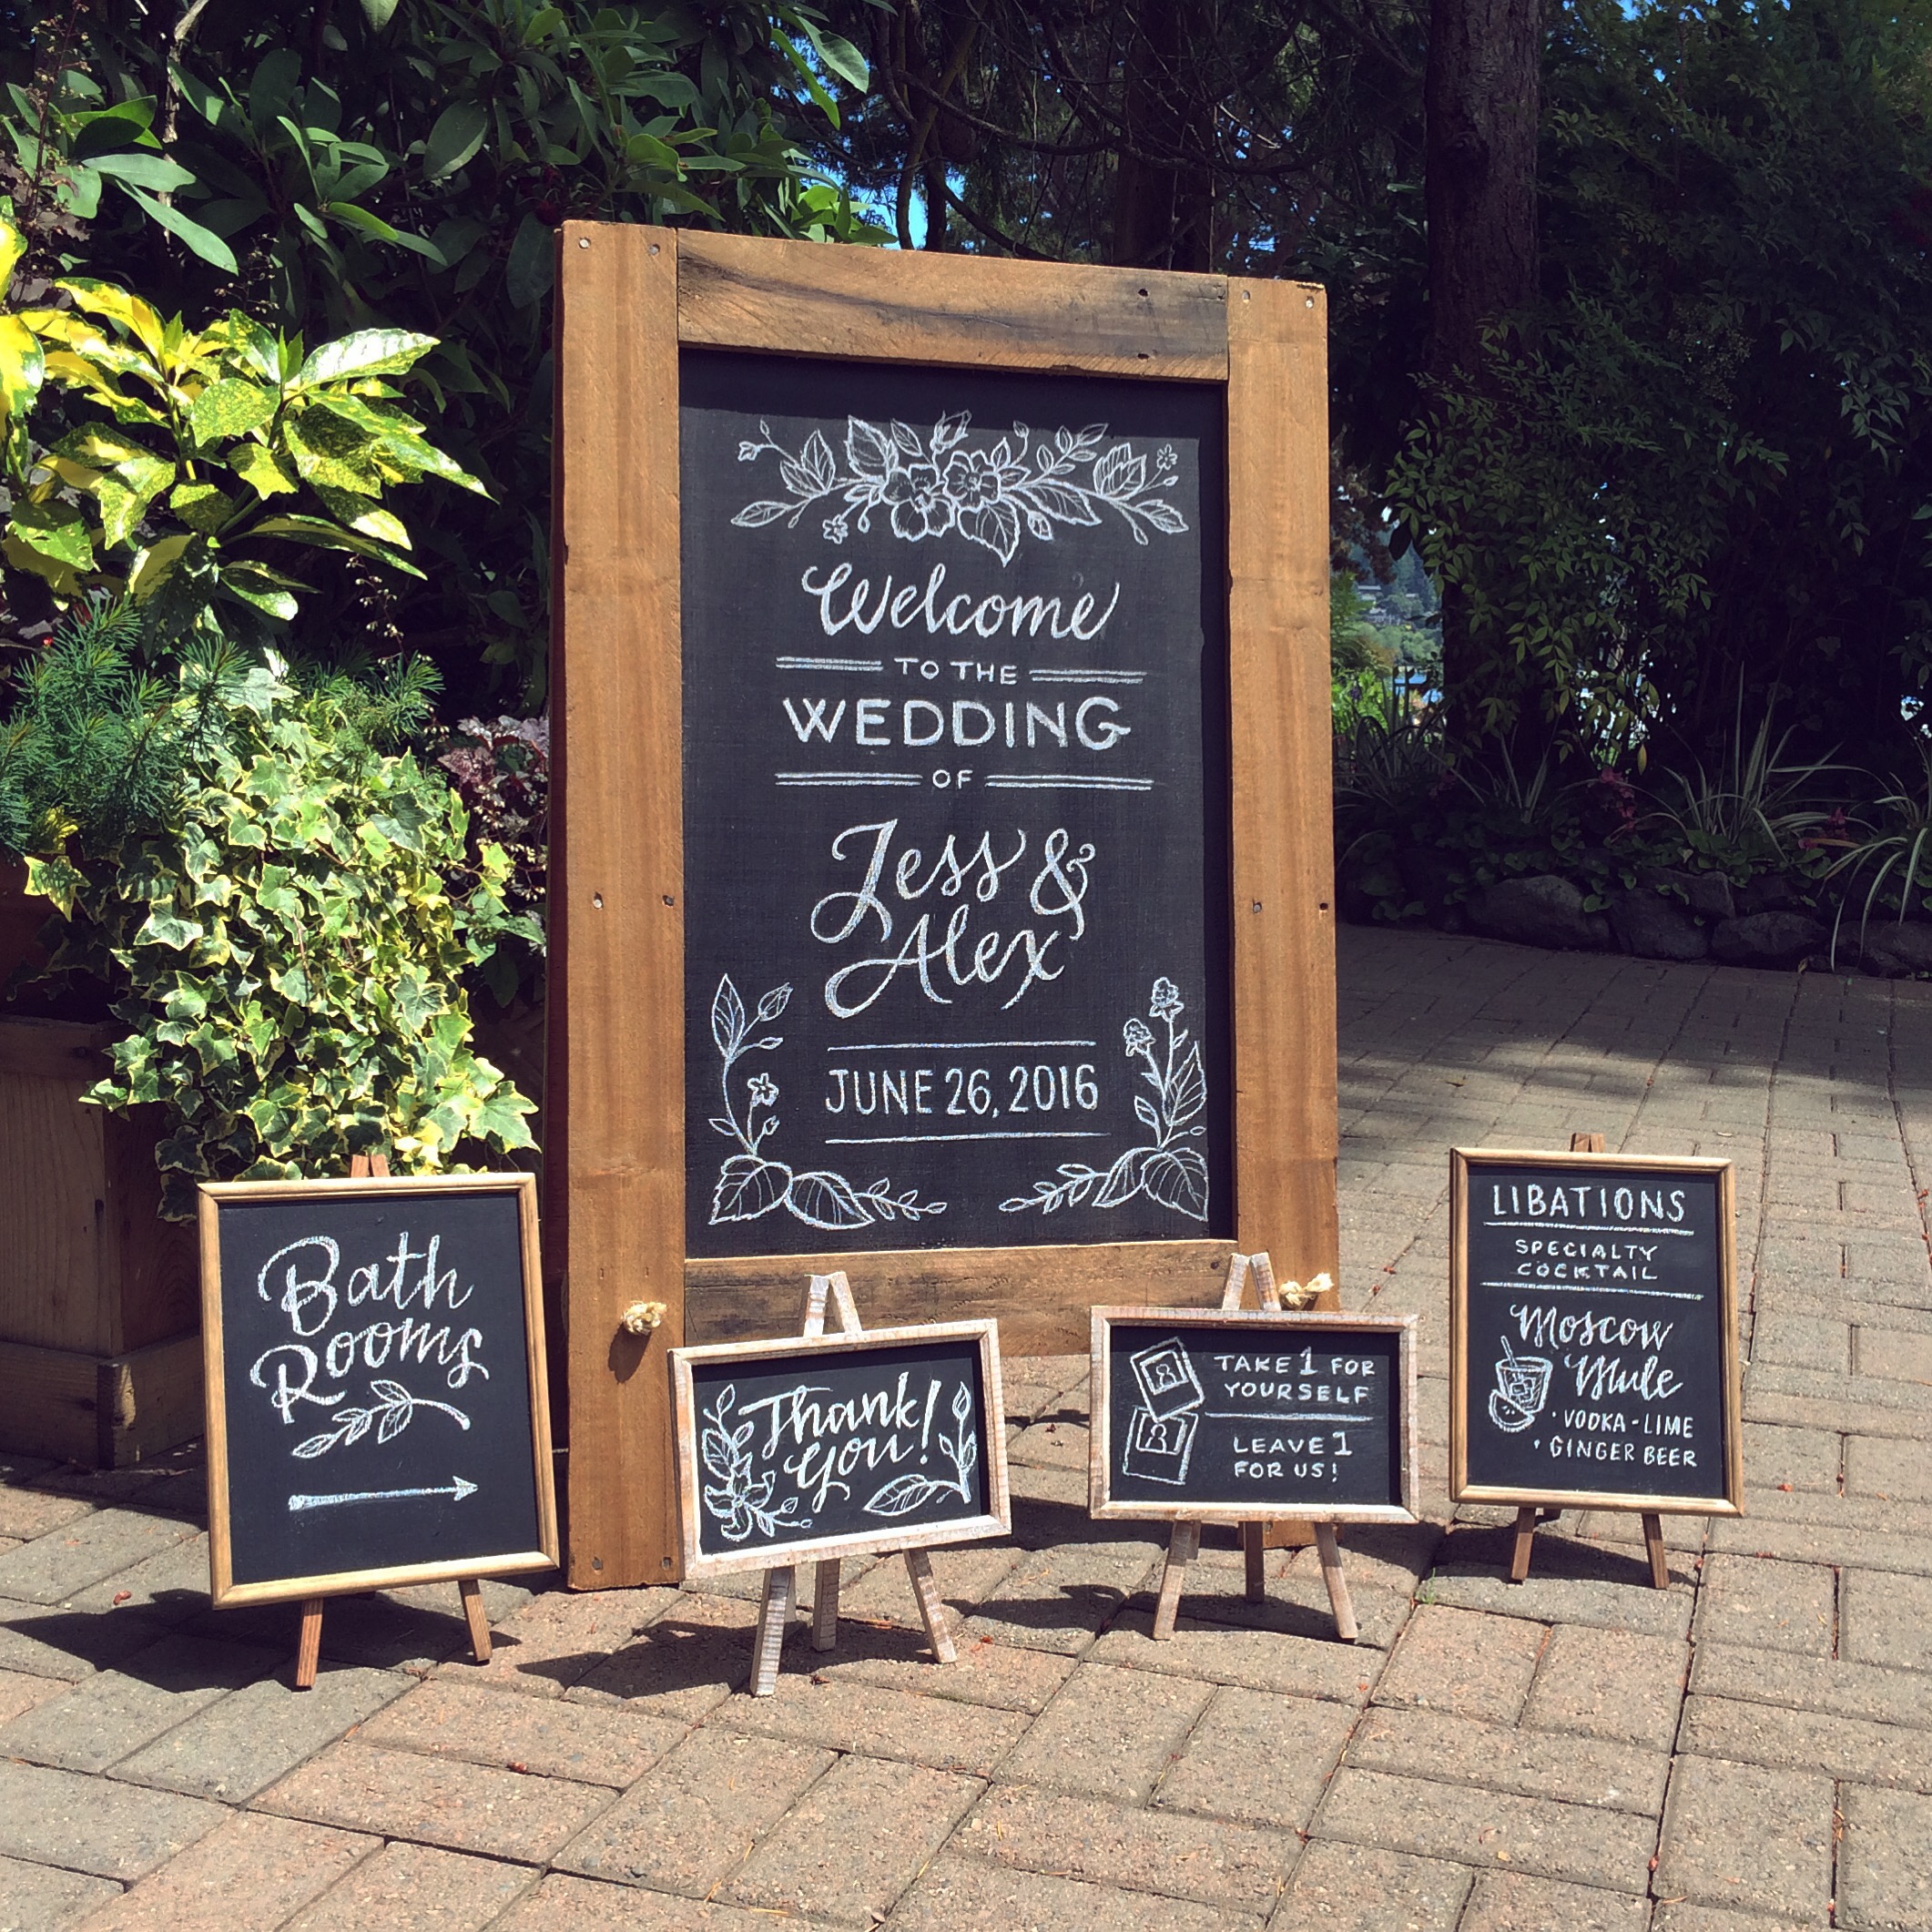 Welcome
TO THE
WEDDING
OF
Jess &
Alex
JUNE 26, 2016
Bath
Rooms
Thank
you!
TAKE 1 FOR
YOURSELF
LEAVE 1
FOR US!
LIBATIONS
SPECIALTY
COCKTAIL
Moscow
Mule
• VODKA - LIME
• GINGER BEER